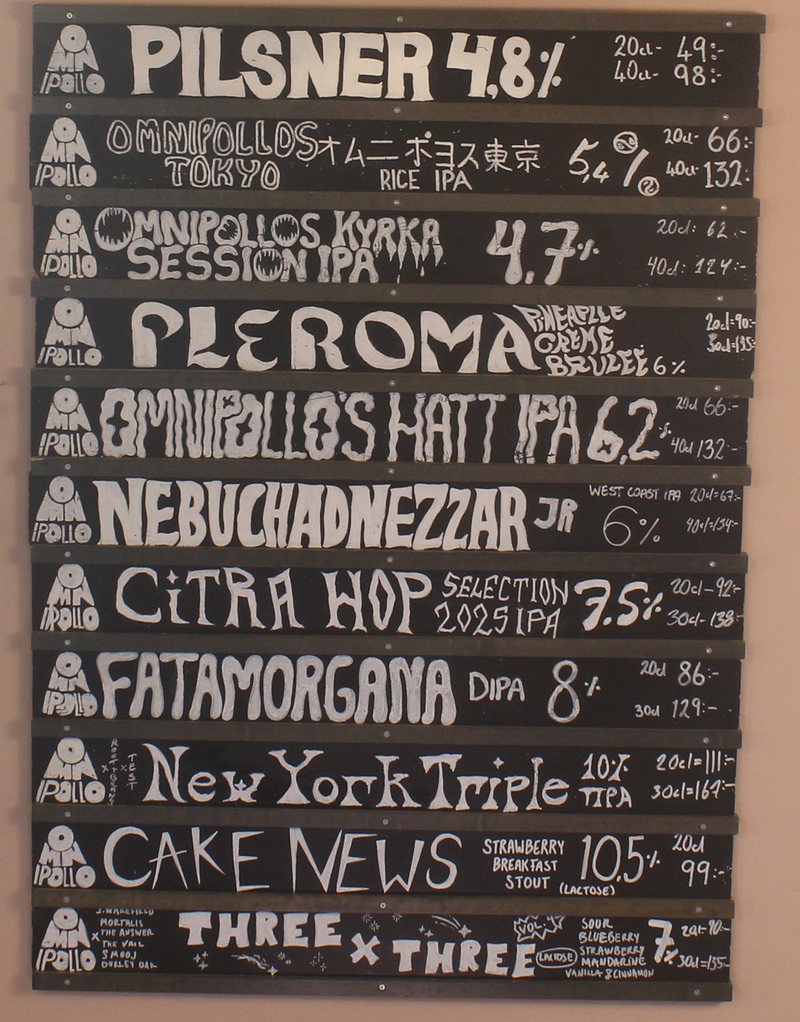 OMNIPOLLO PILSNER 4,8% 20cl- 49:-
40cl- 98:-
OMNIPOLLO OMNIPOLLOS オムニポヨス東京 5,4% 20cl- 66:-
TOKYO RICE IPA 40cl- 132:-
OMNIPOLLO OMNIPOLLOS KYRKA 4,7% 20cl: 62:-
SESSION IPA 40cl: 124:-
OMNIPOLLO PLEROMA PINEAPLLE 20cl=90:-
CREME 30cl=135:-
BRULEE 6%
OMNIPOLLO OMNIPOLLO'S HATT IPA 6,2% 20cl 66:-
40cl 132:-
OMNIPOLLO NEBUCHADNEZZAR JR WEST COAST IPA 20cl=67:-
6% 40cl=134:-
OMNIPOLLO CiTRA HOP SELECTION 7.5% 20cl-92:-
2025 IPA 30cl-138:-
OMNIPOLLO FATAMORGANA DIPA 8% 20cl 86:-
30cl 129:-
OMNIPOLLO x TEST New York Triple 10% 20cl=111:-
TIPA 30cl=167:-
OMNIPOLLO CAKE NEWS STRAWBERRY 10,5% 20cl
BREAKFAST 99:-
STOUT (LACTOSE)
OMNIPOLLO x J.WAKEFIELD THREE X THREE SOUR 7% 20cl-90:-
MORTALIS BLUEBERRY
THE ANSWER LACTOSE STRAWBERRY
THE VAIL MANDARINE 30cl=135:-
SMOOJ VANILLA & CINNAMON
DURLEY OAK